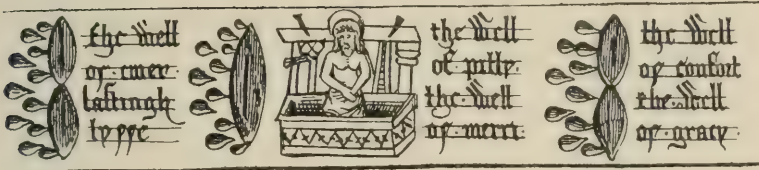 the well
of ewer
lastingh
lyffe
the well
of pitty
the well
of merci
the well
of confort
the well
of gracy